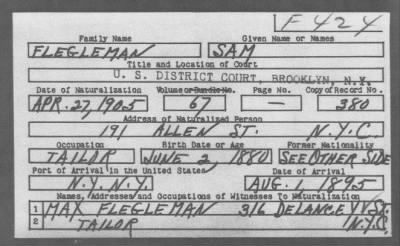 F424
Family Name Given Name or Names
FLEGLEMAN SAM
Title and Location of Court
U. S. DISTRICT COURT, BROOKLYN, N.Y.
Date of Naturalization Volume or Bundle No. Page No. Copy of Record No.
APR. 27, 1905 67 — 380
Address of Naturalized Person
191 ALLEN ST. N.Y.C.
Occupation Birth Date or Age Former Nationality
TAILOR JUNE 2, 1880 SEE OTHER SIDE
Port of Arrival in the United States Date of Arrival
N.Y. N.Y. AUG. 1, 1895
Names, Addresses and Occupations of Witnesses To Naturalization
1 MAX FLEGLEMAN 316 DELANCEY ST.
2 TAILOR N.Y.C.